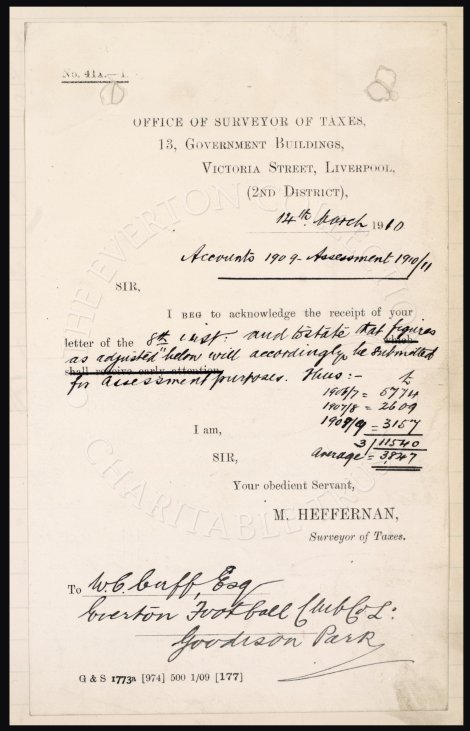 No. 41A.—1.
OFFICE OF SURVEYOR OF TAXES,
13, Government Buildings,
Victoria Street, Liverpool,
(2ND DISTRICT),
14th March 1910
Accounts 1909 - Assessment 1910/11
SIR,
I BEG to acknowledge the receipt of your
letter of the 8th inst: and to state that figures which
as adjusted below will accordingly be submitted
shall receive early attention.
for assessment purposes. Thus:- £
1906/7 = 5774
1907/8 = 2609
1908/9 = 3157
I am,
3/11540
SIR,
Average = 3847
Your obedient Servant,
M. HEFFERNAN,
Surveyor of Taxes.
To W.C. Cuff, Esq
Everton Football Club Co L:
Goodison Park
G & S 1773a [974] 500 1/09 [177]
THE EVERTON COLLECTION
CHARITABLE TRUST